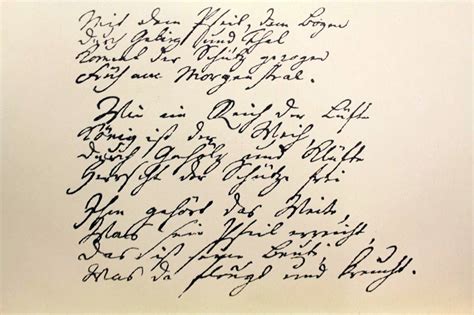 Mit dem Pfeil, dem Bogen
durch Gebirg und Thal
kommt der Schütz gezogen
früh am Morgenstral.
Wie im Reich der Lüfte
König ist der Weih,
durch Gehölz und Klüfte
Herrscht der Schütze frei
Ihm gehört das Weite,
Was sein Pfeil erreicht,
das ist seine Beute,
Was da fleugt und kreucht.